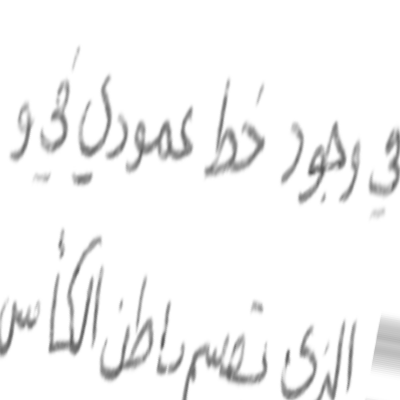 في وجود خط عمودي في و
الذي تقسم باطن الكأس